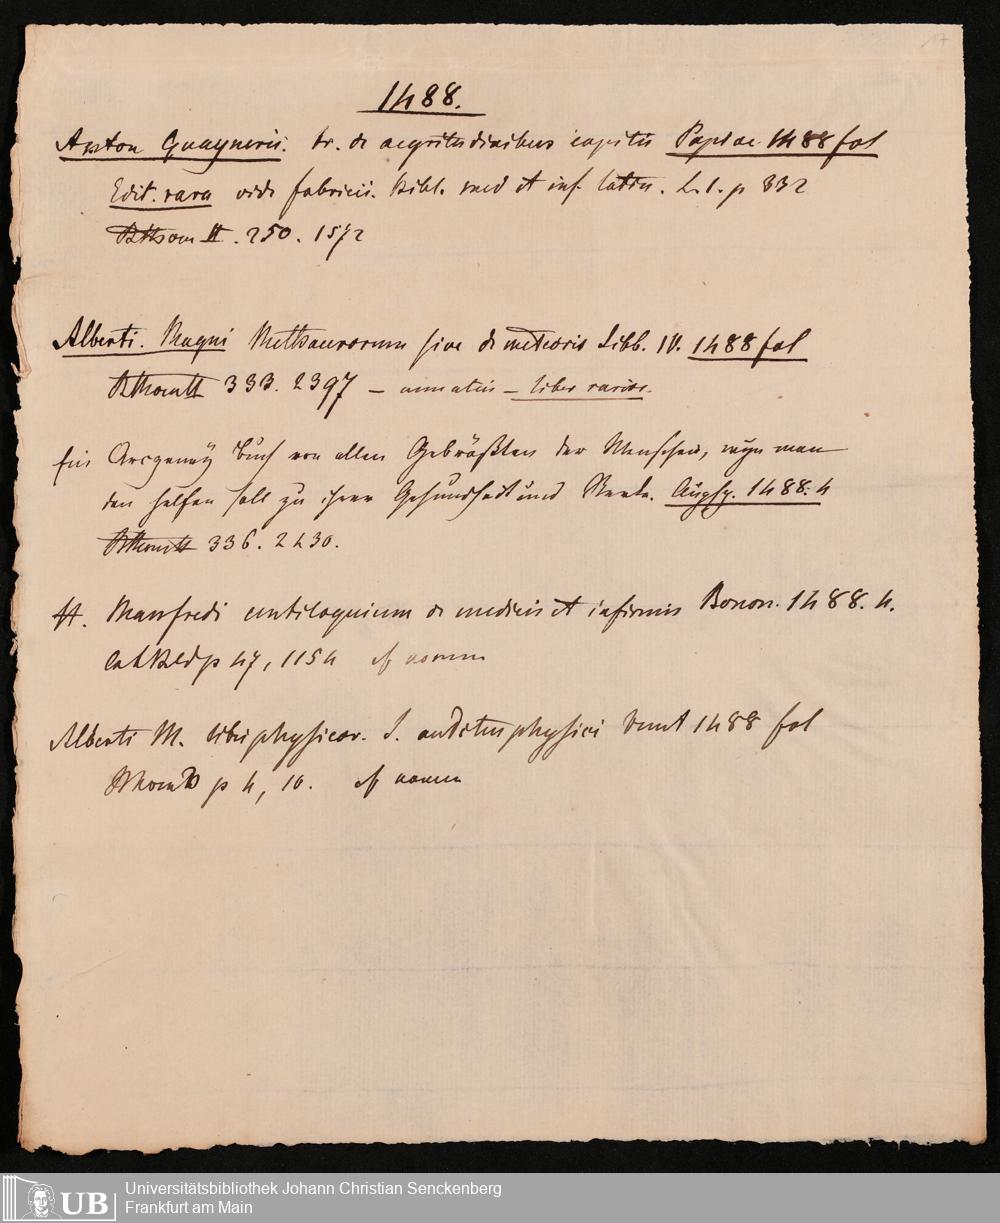 17
1488.
Anton Guaynerii. tr. de aegritudinibus capitis Papiae 1488 fol
Edit. rara vide fabricii. bibl. med et inf. latin. L. 1. p 332
II. 250. 1572
Alberti. Magni Metheurorum sive de meteoris Libb. IV. 1488 fol
333. 2397 – – liber rarior.
Ein Arczney Buch von allen Gebräßten der Menschen, wye man
den helfen soll zu ihrer Gesundheit und Augsp. 1488. 4
336. 2430.
H. Manfredi centiloquium de medicis et infirmis Bonon. 1488. 4.
p 47, 1154 cf nomen
Alberti M. libri physicor. S. auditus physici Venet 1488 fol
p 4, 10. cf nomen
UB Universitätsbibliothek Johann Christian Senckenberg
Frankfurt am Main